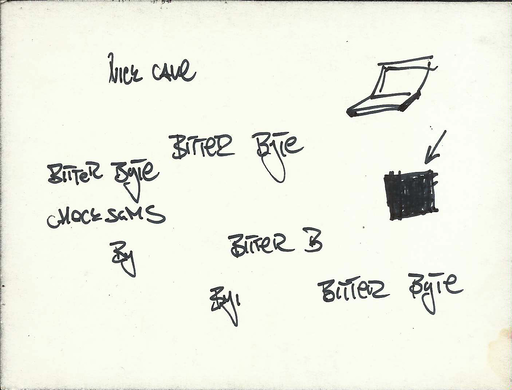 NICK CAVE
BITTER BYTE
BITTER BYTE
CHOCKSAMS
By
BITTER B
By
BITTER BYTE